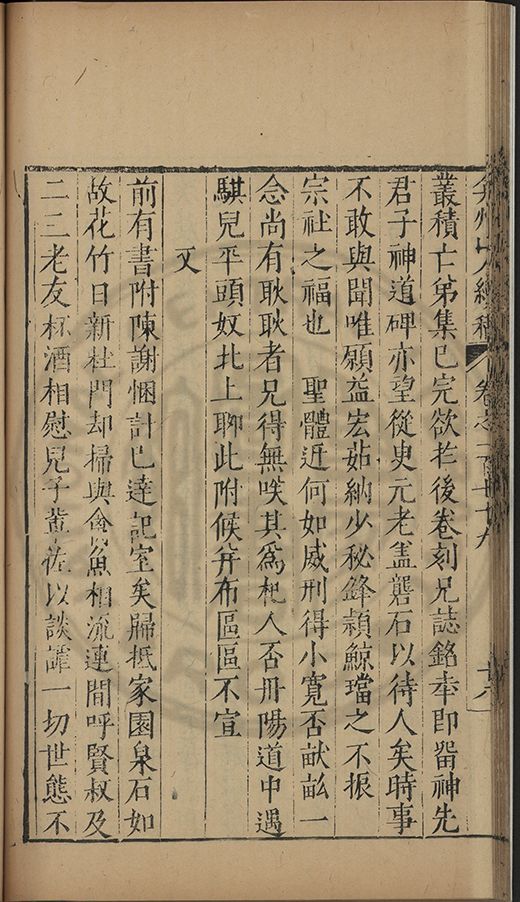 弇州山人續稿 卷之一百七十九
叢積亡弟集已完欲於後卷刻兄誌銘幸即畱神先
君子神道碑亦望從臾元老盖礲石以待人矣時事
不敢與聞唯願益宏茹納少秘鋒頴鯨璫之不振
宗社之福也 聖體近何如威刑得小寬否畎畝一
念尚有耿耿者兄得無㗛其為杞人否丹陽道中遇
騏兒平頭奴北上聊此附候并布區區不宣
又
前有書附陳謝悃計已達記室矣歸抵家園泉石如
故花竹日新杜門却掃與禽魚相流連間呼賢叔及
二三老友杯酒相慰兒子輩佐以談謔一切世態不